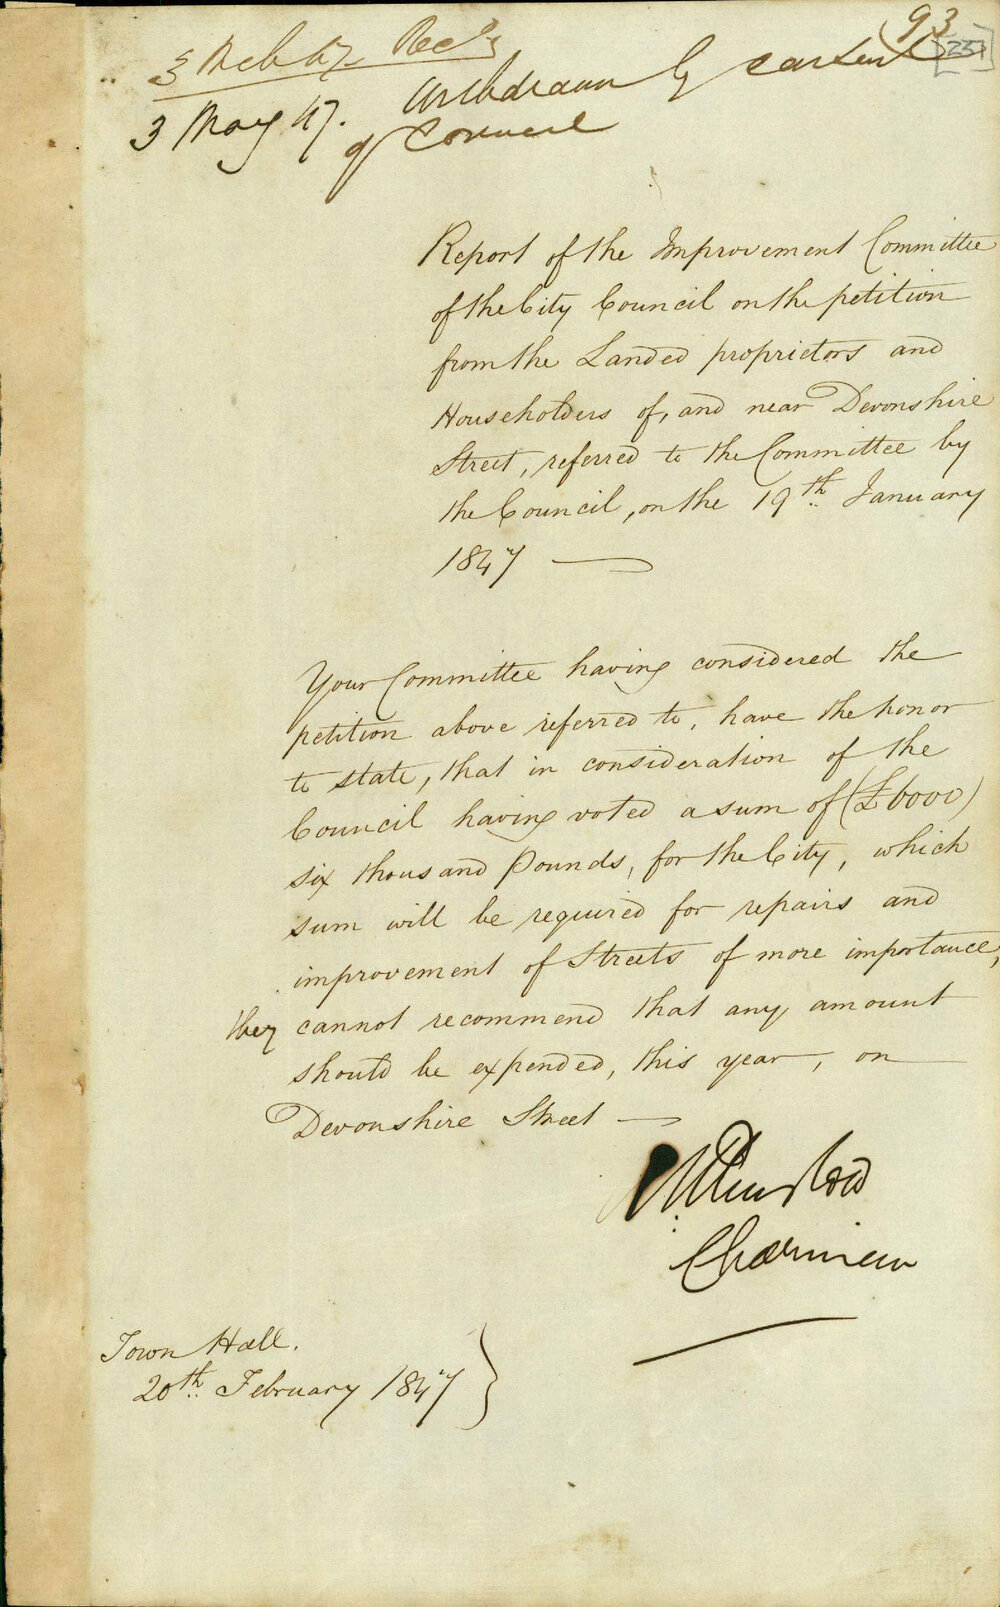 93
[234]
3 Mch 47 Recd
3 May 47. Withdrawn by consent
of Council
Report of the Improvement Committee
of the City Council on the petition
from the Landed proprietors and
Householders of, and near Devonshire
Street, referred to the Committee by
the Council, on the 19th January
1847
Your Committee having considered the
petition above referred to, have the honor
to state, that in consideration of the
Council having voted a sum of (£6000)
six thousand Pounds, for the City, which
sum will be required for repairs and
improvement of Streets of more importance,
they cannot recommend that any amount
should be expended, this year, on
Devonshire Street
Chairman
Town Hall.
20th February 1847